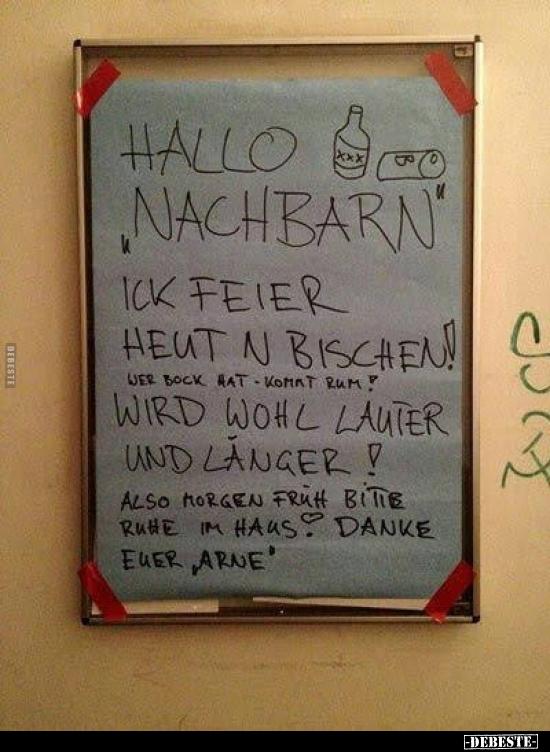 HALLO
XXX
„NACHBARN"
ICK FEIER
HEUT N BISCHEN!
WER BOCK HAT - KOMMT RUM!
WIRD WOHL LAUTER
UND LÄNGER!
ALSO MORGEN FRÜH BITTE
RUHE IM HAUS! DANKE
EUER „ARNE"
DEBESTE
-DEBESTE-